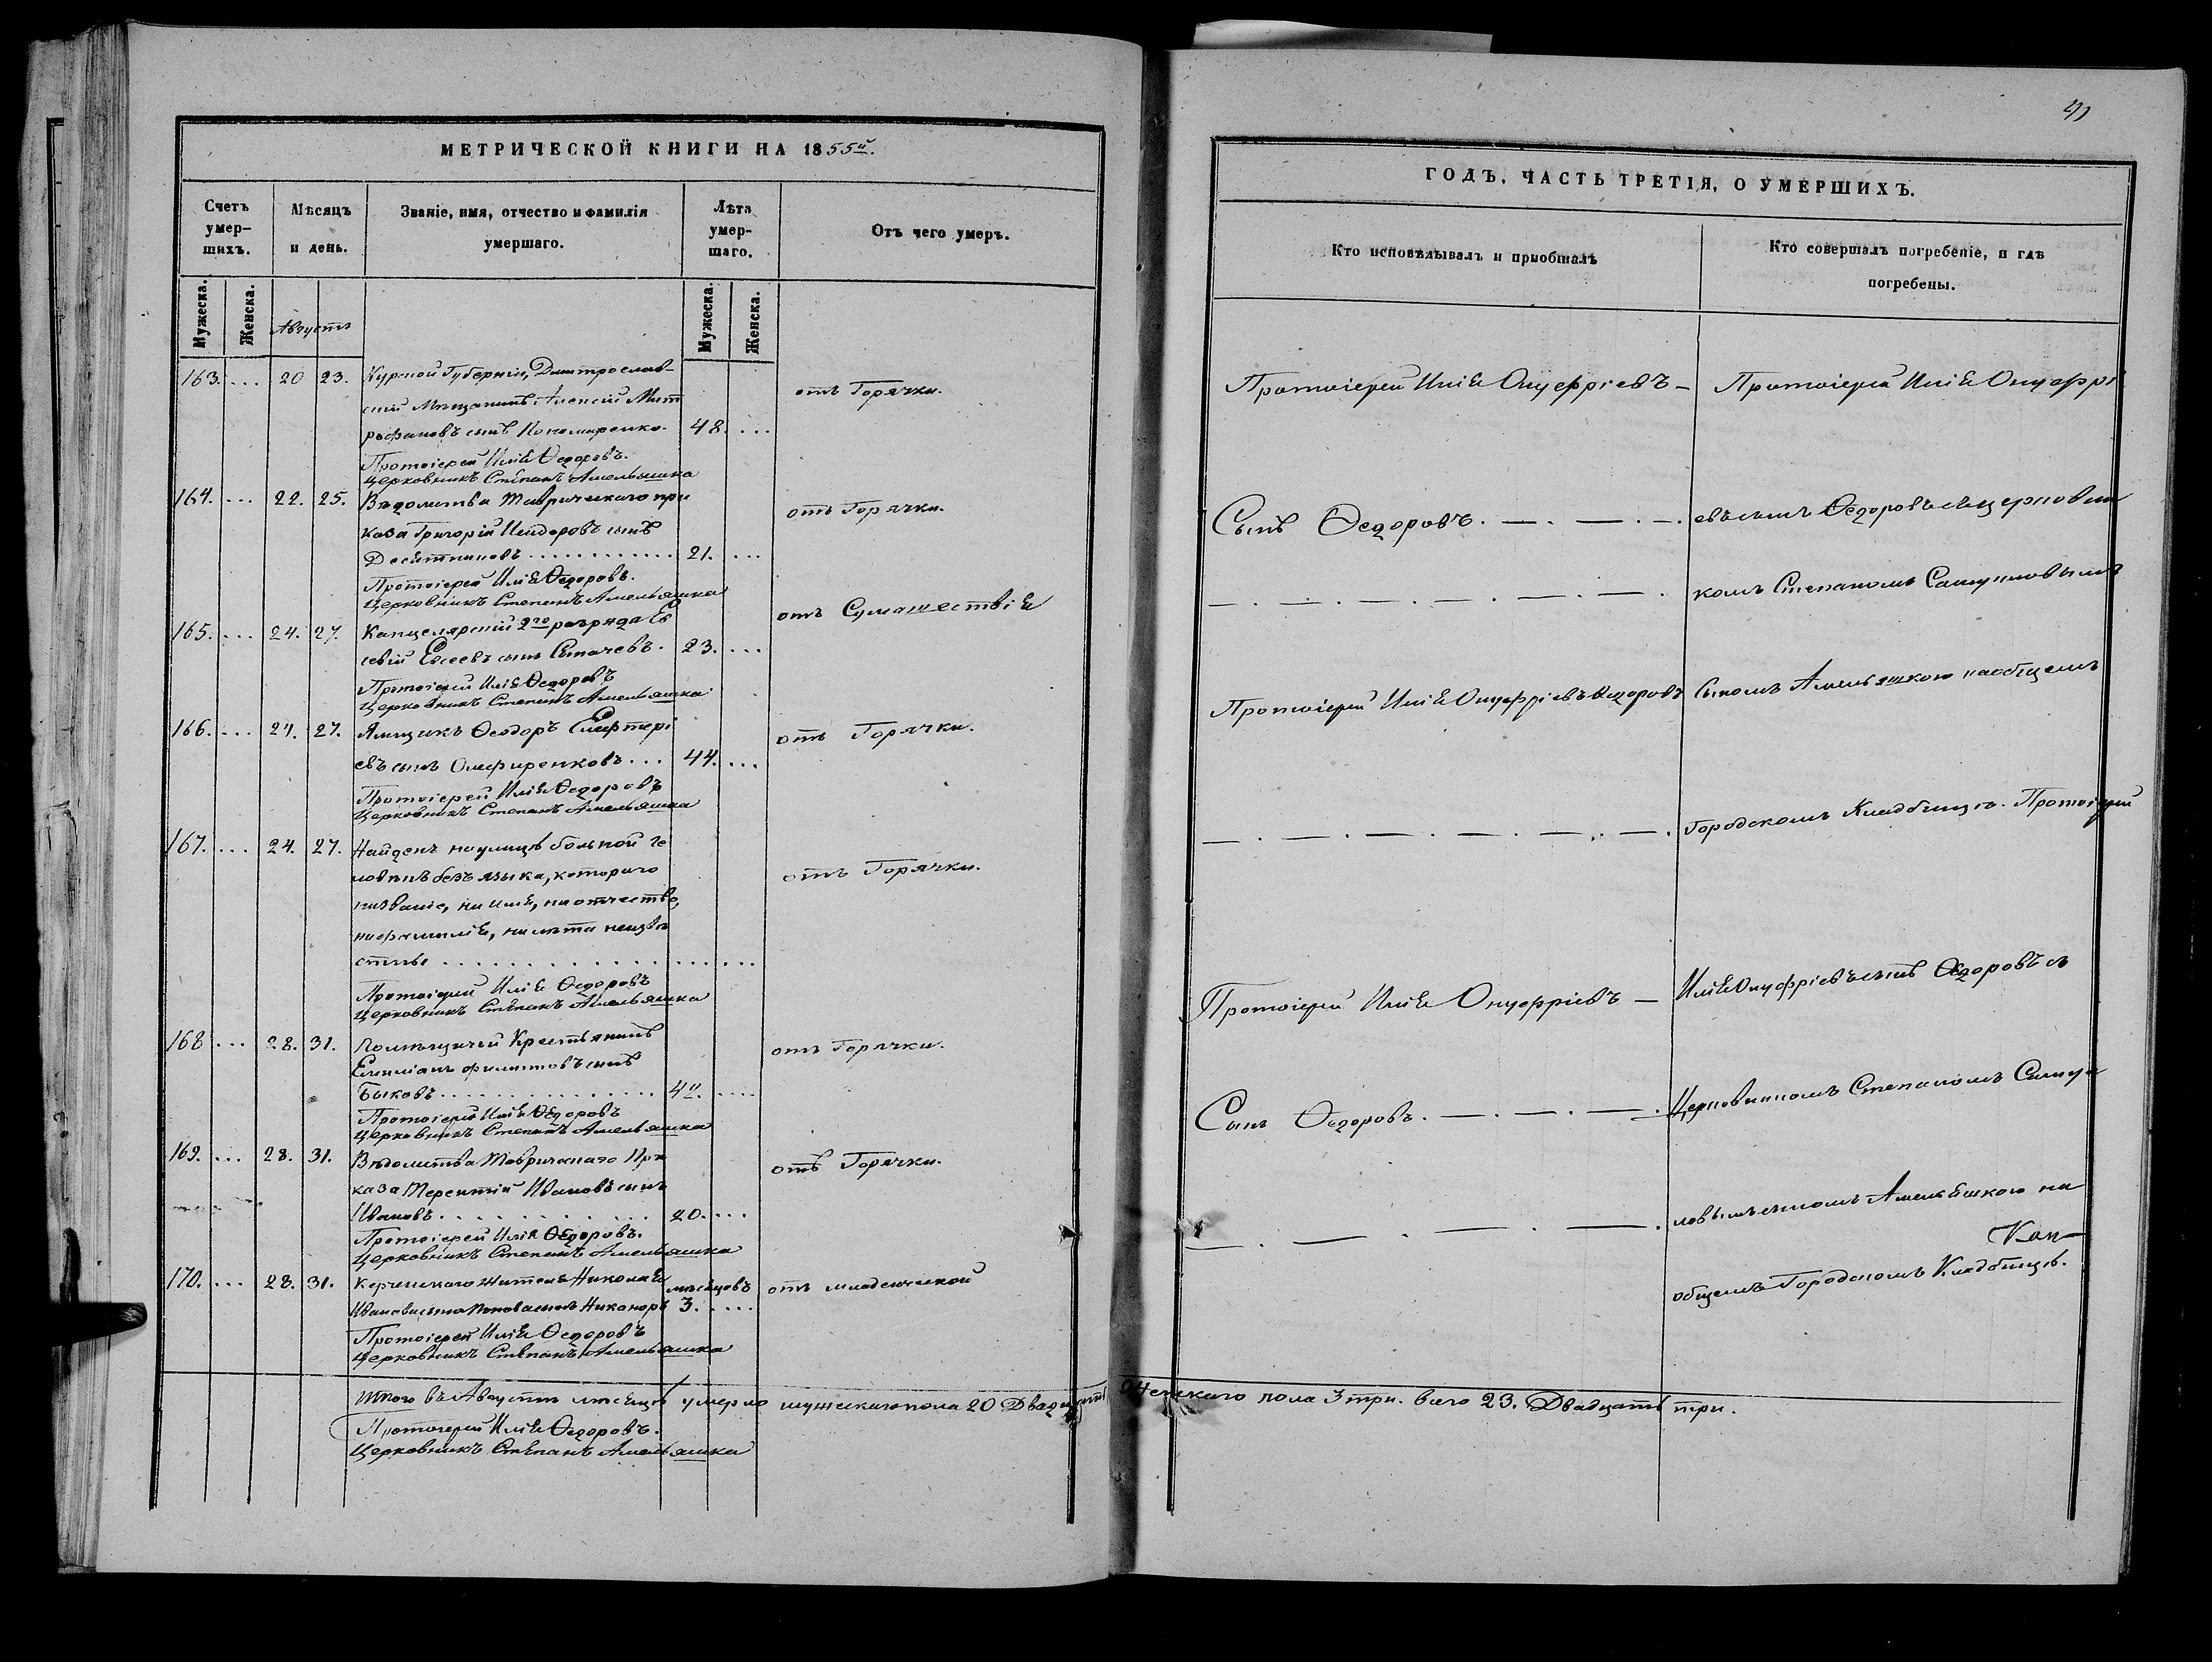 МЕТРИЧЕСКОЙ КНИГИ НА 1855й.
Счетъ умер-шихъ.
Мѣсяцъ и день.
Званіе, имя, отчество и фамилія умершаго.
Лѣта умер-шаго.
Отъ чего умеръ.
Мужеска.
Женска.
Августъ
Мужеска.
Женска.
163. ... 20 23. Курской Губерніи, Дмитрослав-
скій Мѣщанинъ Алексій Мит
рофановъ сынъ Пономаренко. 48. ... отъ Горячки.
Протоіерей Илія Ѳедоровъ.
Церковникъ Степанъ Амельяшка
164. ... 22. 25. Вѣдомства Таврическаго при
каза Григорій Исидоровъ сынъ
Десятниковъ ............ 21. ... отъ Горячки.
Протоіерей Илія Ѳедоровъ.
Церковникъ Степанъ Амельяшка
165. ... 24. 27. Канцелярскій 2го разряда Ев
севій Евсеевъ сынъ 23. ... отъ Сумашествія
Протоіерей Илія Ѳедоровъ
Церковникъ Степанъ Амельяшка
166. ... 24. 27. Ямщикъ Ѳеодоръ Елефтері
евъ сынъ Олефиренковъ ... 44. ... отъ Горячки.
Протоіерей Илія Ѳедоровъ
Церковникъ Степанъ Амельяшка
167. ... 24. 27. Найденъ на улицѣ больной че
ловѣкъ безъ языка, котораго
ни званіе, ни имя, ни отчество,
ни фамилія, ни лѣта неизвѣ
стны ............... отъ Горячки.
Протоіерей Илія Ѳедоровъ
Церковникъ Степанъ Амельяшка
168 ... 28. 31. Помѣщичій Крестьянинъ
Емиліанъ Филиповъ сынъ
Быковъ ............... ... отъ Горячки.
Протоіерей Илія Ѳедоровъ
Церковникъ Степанъ Амельяшка
169. ... 28. 31. Вѣдомства Таврическаго При
каза Терентій Ивановъ сынъ
Ивановъ ............ 20. ... отъ Горячки.
Протоіерей Илія Ѳедоровъ.
Церковникъ Степанъ Амельяшка
170. ... 28. 31. Керченскаго жителя Николая мѣсяцовъ отъ младенческой
Иванова сына Попова сынъ Никаноръ 3. ....
Протоіерей Илія Ѳедоровъ
Церковникъ Степанъ Амельяшка
Итого въ Августѣ мѣсяцѣ умерло мужескаго пола 20 Двадцать
Протоіерей Илія Ѳедоровъ.
Церковникъ Степанъ Амельяшка
ГОДЪ, ЧАСТЬ ТРЕТІЯ, О УМЕРШИХЪ.
Кто исповѣдывалъ и пріобщалъ
Кто совершалъ погребеніе, и гдѣ погребены.
Протоіерей Илія Онуфріевъ — Протоіерей Илія Онуфрі
Сынъ Ѳедоровъ. — . — . — . евъ сынъ Ѳедоровъ съ церковни
— . — . — . — . — . — . комъ Степаномъ Самуиловымъ
Протоіерей Илія Онуфріевъ Ѳедоровъ Сыномъ Амельяшкою на общемъ
— . — . — . — . — . — . Городскомъ Кладбищѣ. Протоіерей
Протоіерей Илія Онуфріевъ — Илія Онуфріевъ сынъ Ѳедоровъ съ
Сынъ Ѳедоровъ. — . — . — . Церковникомъ Степаномъ Самуи
— . — . — . — . ловымъ сыномъ Амельяшкою на
общемъ Городскомъ Кладбищѣ.
Женскаго пола 3 три. всего 23. Двадцать три.